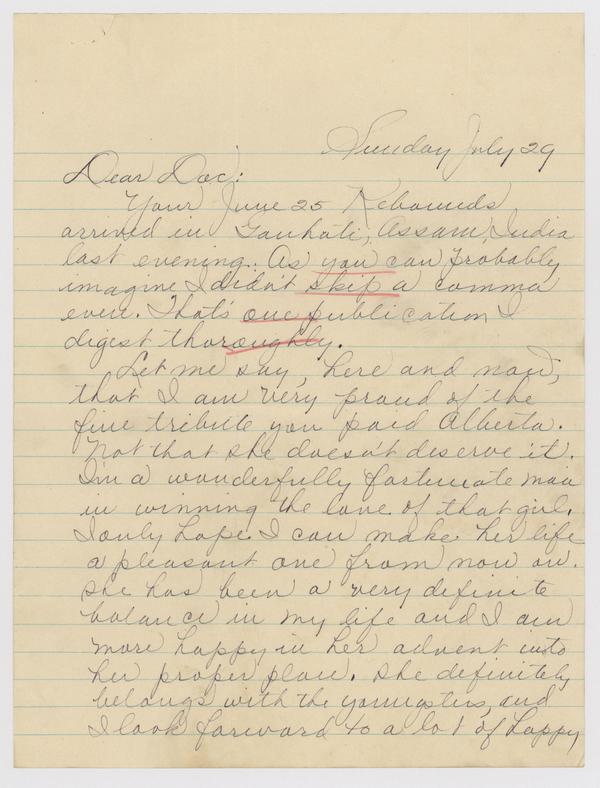 Sunday July 29
Dear Doc:
Your June 25 Rebounds
arrived in Gauhati, Assam, India
last evening. As you can probably
imagine I didn't skip a comma
even. That's one publication I
digest thoroughly.
Let me say, here and now,
that I am very proud of the
fine tribute you paid Alberta.
Not that she doesn't deserve it.
I'm a wonderfully fortunate man
in winning the love of that girl.
I only hope I can make her life
a pleasant one from now on.
She has been a very definite
balance in my life and I am
more happy in her advent into
her proper place. She definitely
belongs with the youngsters, and
I look forward to a lot of happy